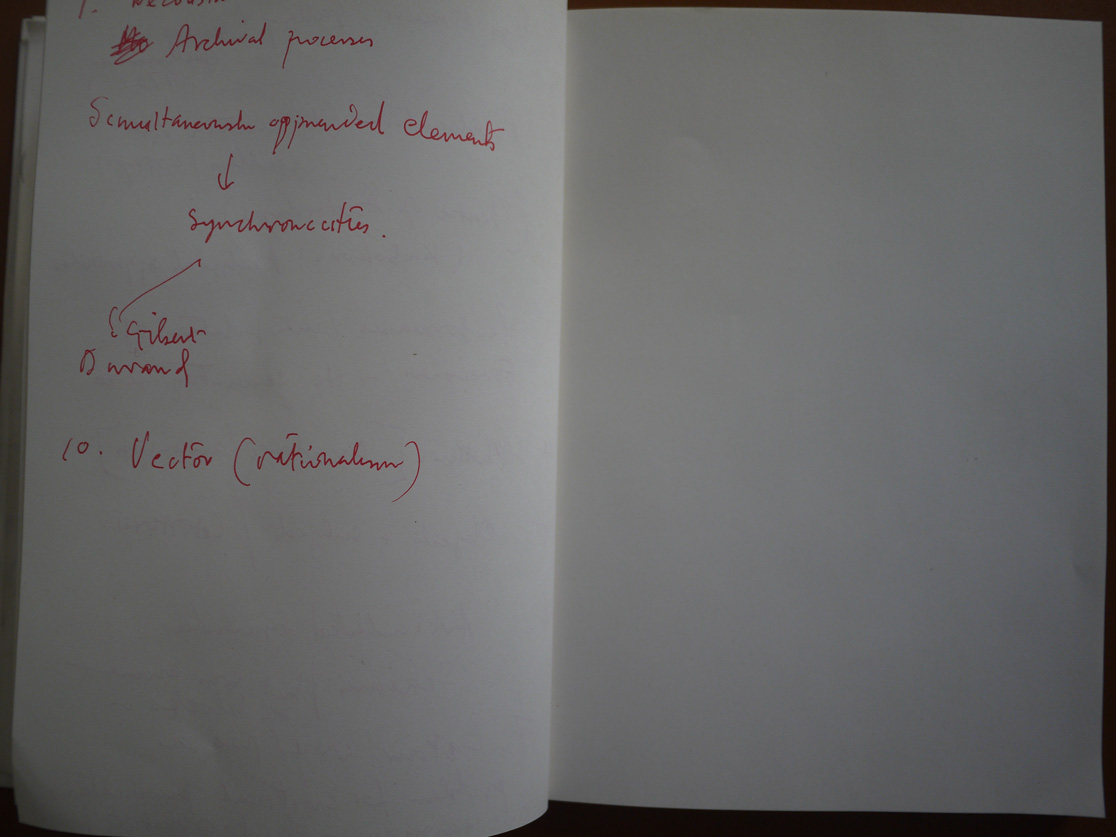 Archival processes
Simultaneously appended elements
↓
Synchronicities.
Gilbert
Durand
10. Vector (rationalism)